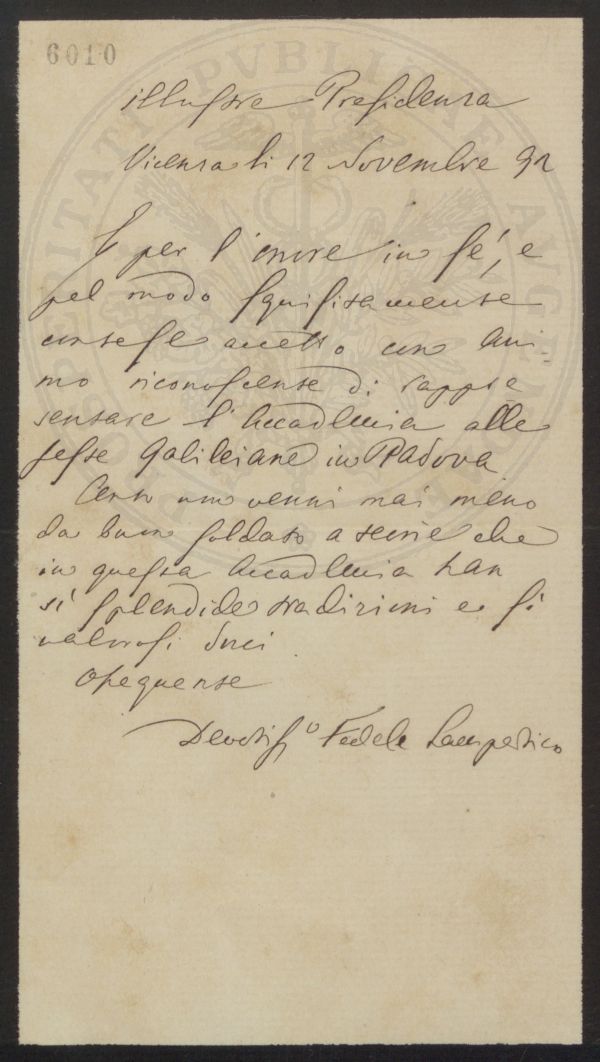 6010
PROSPERITATI PVBLICAE AVGENDAE
Illustre Presidenza
Vicenza li 12 Novembre 92
E per l'onore in sé, e
pel modo squisitamente
cortese accetto con ani-
mo riconoscente di rappre
sentare l'Accademia alle
feste Galileiane in Padova
Certo non venni mai meno
da buon soldato a serie che
in questa Accademia han
sì splendide tradizioni e sì
valorosi duci
Ossequente
Devotisso Fedele Lampertico